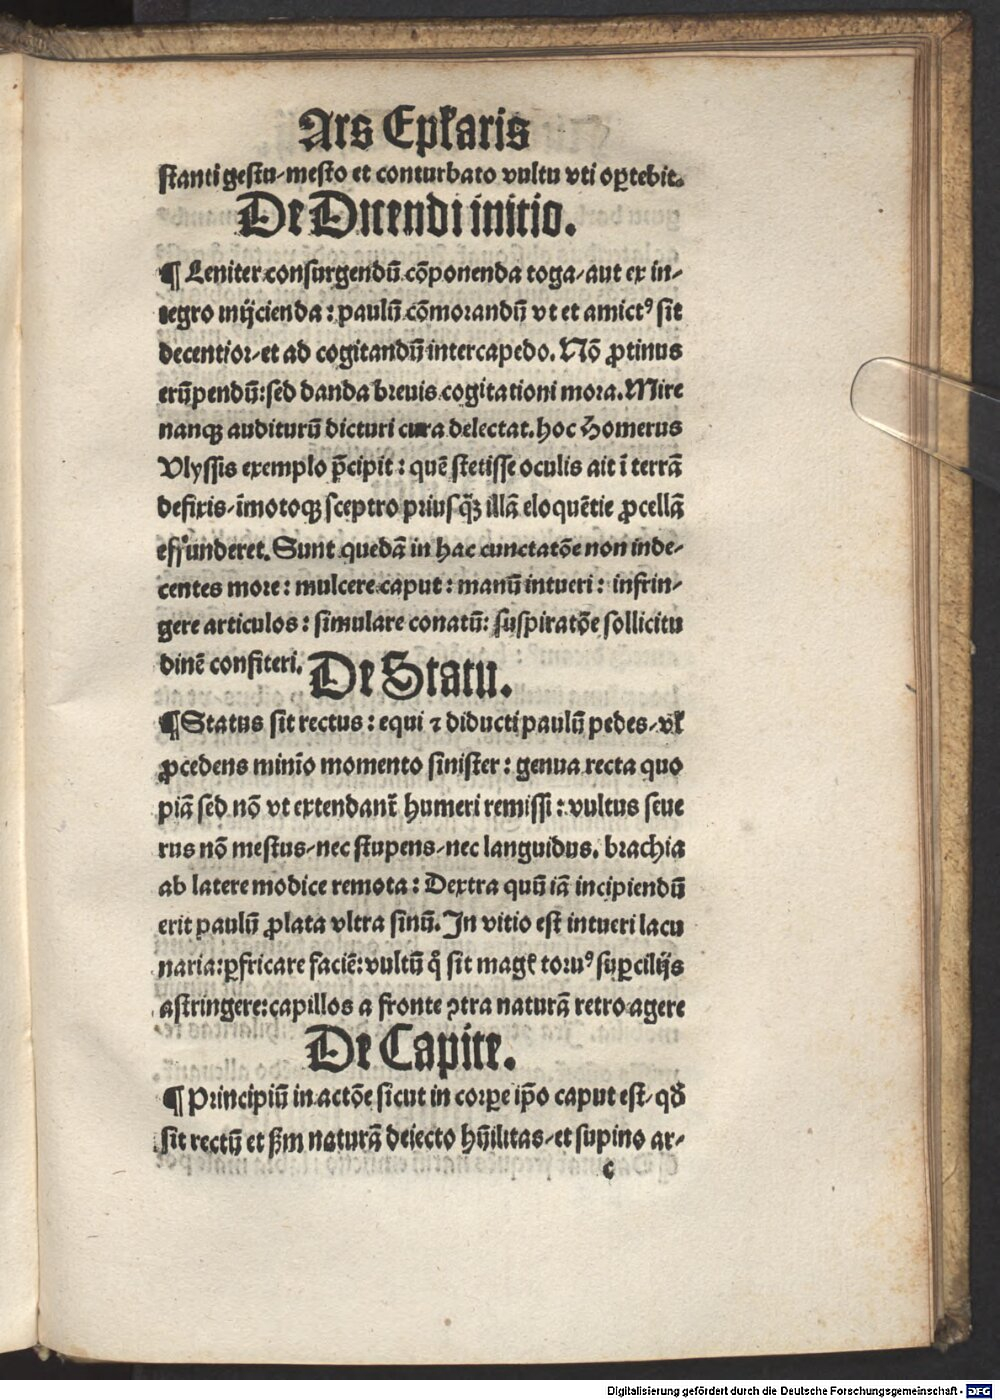 Ars Epl̄aris
stanti gestu/mesto et conturbato vultu vti oꝑtebit.
De Dicendi initio.
¶ Leniter consurgendū cōponenda toga/aut ex in/
tegro inijcienda: paulū cōmorandū vt et amictꝰ sit
decentior/et ad cogitandū intercapedo. Nō ꝓtinus
erūpendū: sed danda breuis cogitationi mora. Mire
nanqꝫ auditurū dicturi cura delectat. hoc Homerus
Vlyssis exemplo p̄cipit: quē stetisse oculis ait ī terrā
defixis/īmotoqꝫ sceptro priusq̄ꝫ illā eloquētie ꝓcellā
effunderet. Sunt quedā in hac cunctatōe non inde/
centes more: mulcere caput: manū intueri: infrin/
gere articulos: simulare conatū: suspiratōe sollicitu
dinē confiteri.
De Statu.
¶ Status sit rectus: equi ⁊ diducti paulū pedes/vl̄
ꝓcedens minīo momento sinister: genua recta quo
piā sed nō vt extendant᷑ humeri remissi: vultus seue
rus nō mestus/nec stupens/nec languidus. brachia
ab latere modice remota: Dextra quū iā incipiendū
erit paulū ꝓlata vltra sinū. In vitio est intueri lacu
naria: ꝑfricare faciē: vultū q̊ sit magꝭ toruꝰ suꝑcilijs
astringere: capillos a fronte ꝯtra naturā retro agere
De Capite.
¶ Principiū in actōe sicut in corꝑe ip̄o caput est/qđ
sit rectū et ẜm naturā deiecto hūilitas/et supino ar/
c
Digitalisierung gefördert durch die Deutsche Forschungsgemeinschaft - DFG